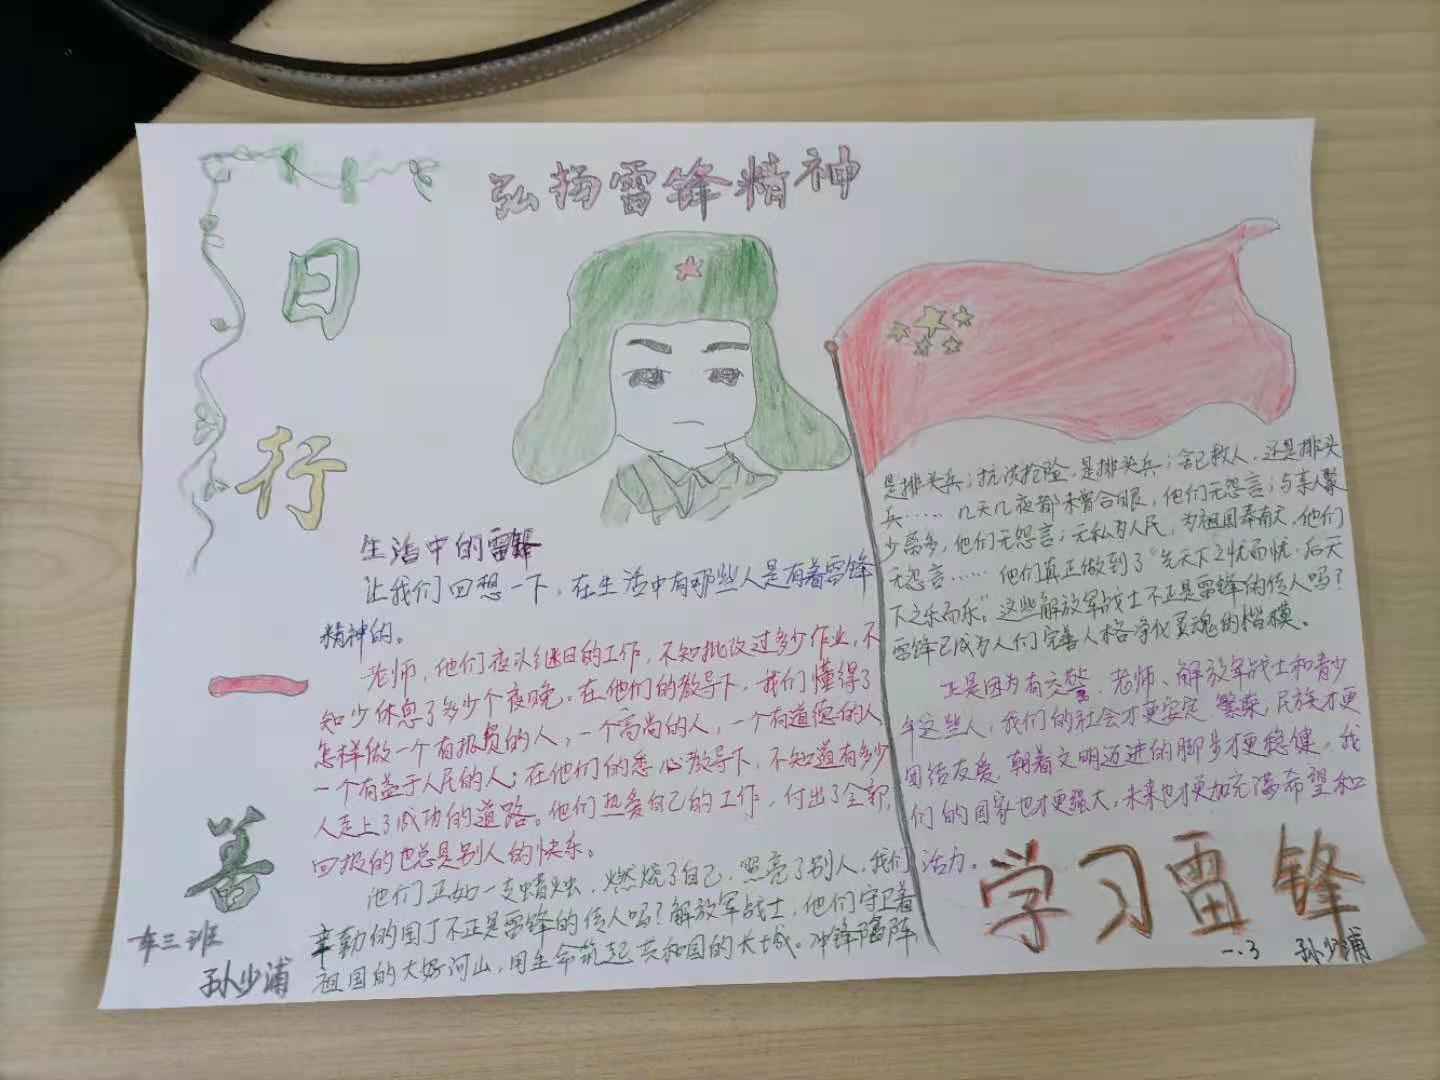 弘扬雷锋精神
日
行
一
善
生活中的雷锋
让我们回想一下，在生活中有那些人是有着雷锋
精神的。
老师，他们夜以继日的工作，不知批改过多少作业，不
知少休息了多少个夜晚。在他们的教导下，我们懂得了
怎样做一个有报负的人，一个高尚的人，一个有道德的人
一个有益于人民的人；在他们的悉心教导下，不知道有多少
人走上了成功的道路。他们热爱自己的工作，付出了全部，
回报的也总是别人的快乐。
他们正如一支蜡烛，燃烧了自己，照亮了别人，我们
辛勤的园丁不正是雷锋的传人吗？解放军战士，他们守卫着
祖国的大好河山，用生命筑起共和国的长城。冲锋陷阵
是排头兵；抗洪抢险，是排头兵；舍己救人，还是排头
兵……几天几夜都未曾合眼，他们无怨言；与亲人聚
少离多，他们无怨言；无私为人民，为祖国奉献，他们
无怨言……他们真正做到了“先天下之忧而忧，后天
下之乐而乐。”这些解放军战士不正是雷锋的传人吗？
雷锋已成为人们完善人格净化灵魂的楷模。
正是因为有交警、老师、解放军战士和青少
年这些人，我们的社会才更安定、繁荣，民族才更
团结友爱，朝着文明迈进的脚步才更稳健，我
们的国家也才更强大，未来也才更加充满希望和
活力。
学习雷锋
车三班
孙少浦
一.3 孙少浦